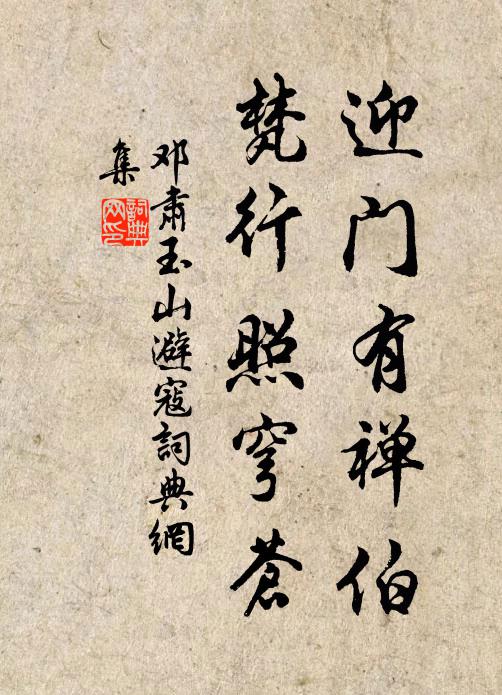 迎门有禅伯
梵行照穹苍
邓肃玉山避寇詞典網
集
詞典
网印